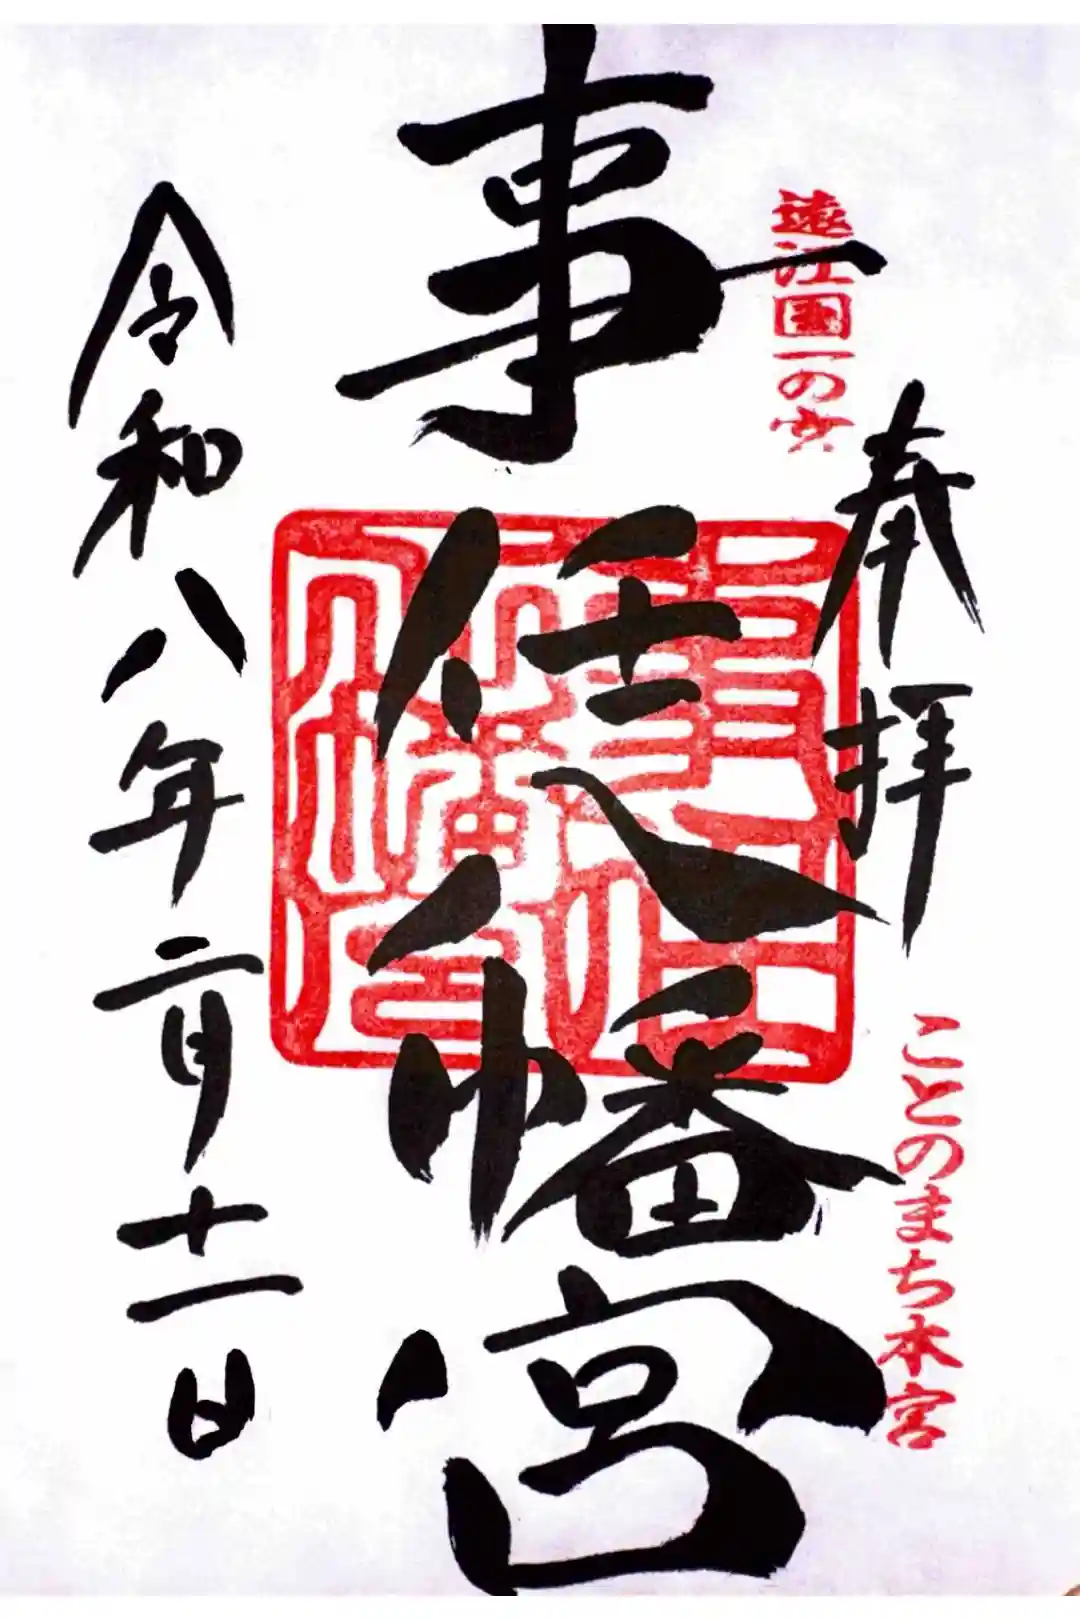 遠江国一の宮
奉拝
ことのまち本宮
事任八幡宮
事任八幡宮
令和八年二月十一日